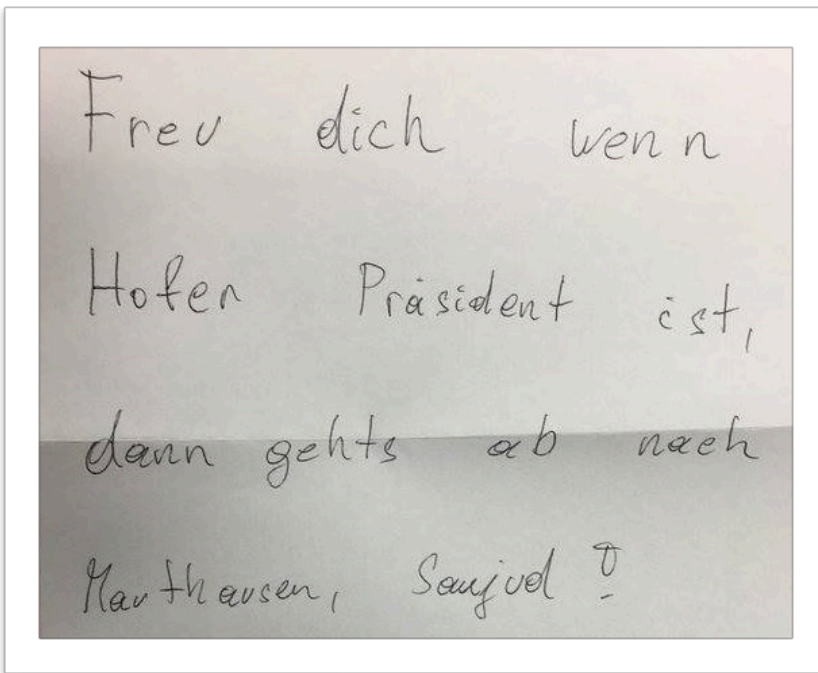 Freu dich wenn
Hofer Präsident ist,
dann gehts ab nach
Mauthausen, Saujud!